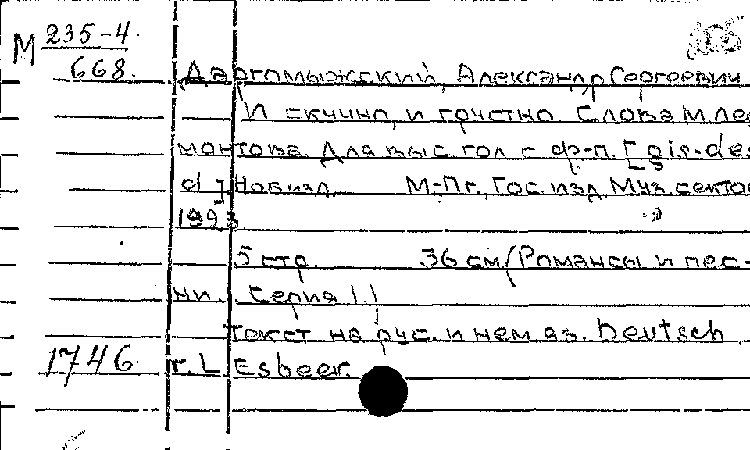 М 235-4
668.
Даргомыжский, Александр Сергеевич
И скучно, и грустно Слова М Ле
монтова. Для выс. гол с ф-п. [gis-des
d] Нов изд. М-Пг, Гос. изд. Муз. секто
1923
5 стр. 36 см (Романсы и пес-
ни. Серия II)
Текст на рус. и нем яз. Deutsch
1746 v. L. Esbeer.